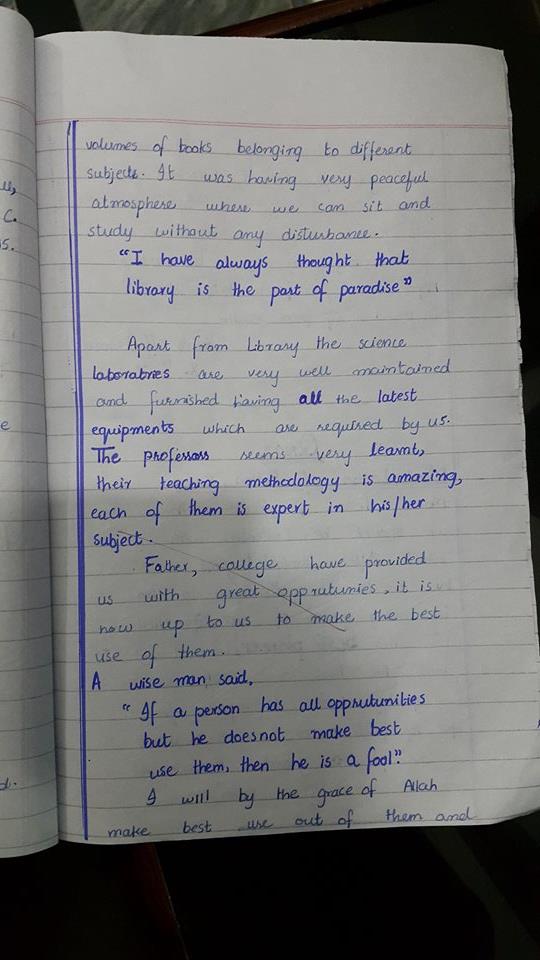 volumes of books belonging to different
subjects. It was having very peaceful
atmosphere where we can sit and
study without any disturbance.
"I have always thought that
library is the part of paradise"
Apart from Library the science
laborabries are very well maintained
and furnished having all the latest
equipments which are required by us.
The professors seems very learnt,
their teaching methodology is amazing,
each of them is expert in his/her
subject.
Father, college have provided
us with great opprutunies, it is
now up to us to make the best
use of them.
A wise man said,
"If a person has all opprutunities
but he doesnot make best
use them, then he is a fool."
I will by the grace of Allah
make best use out of them and
C.
5.
e
d.